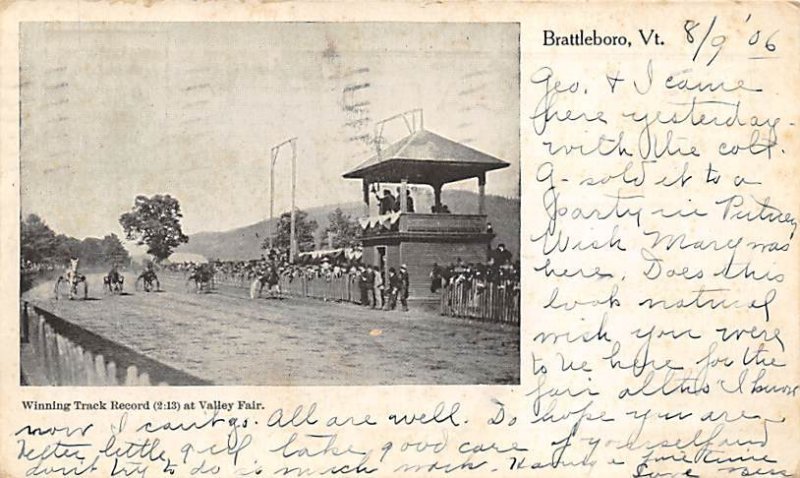 Brattleboro, Vt. 8/9 '06
Geo. & I came
here yesterday
with the colt.
G- sold it to a
party in Putney
Wish Mary was
here. Does this
look natural
wish you were
to be here for the
fair altho' I know
Winning Track Record (2:13) at Valley Fair.
now I can't go. All are well. Do hope you are
better little girl take good care of yourself and
don't try to do so much work. Have a fine time
Love Bess